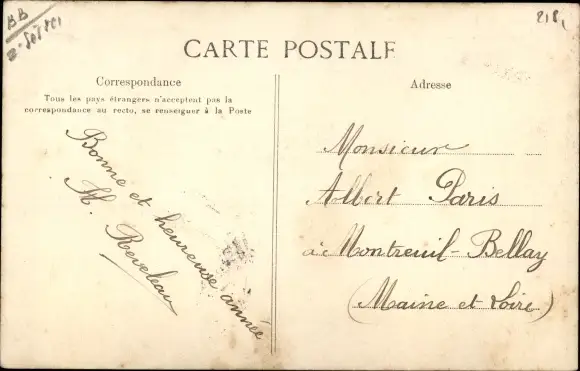 BB
218,
CARTE POSTALE
Correspondance
Tous les pays étrangers n'acceptent pas la
correspondance au recto, se renseigner à la Poste
Bonne et heureuse année
H. Reveleau
Adresse
Monsieur
Albert Paris
à Montreuil-Bellay
(Maine et Loire)